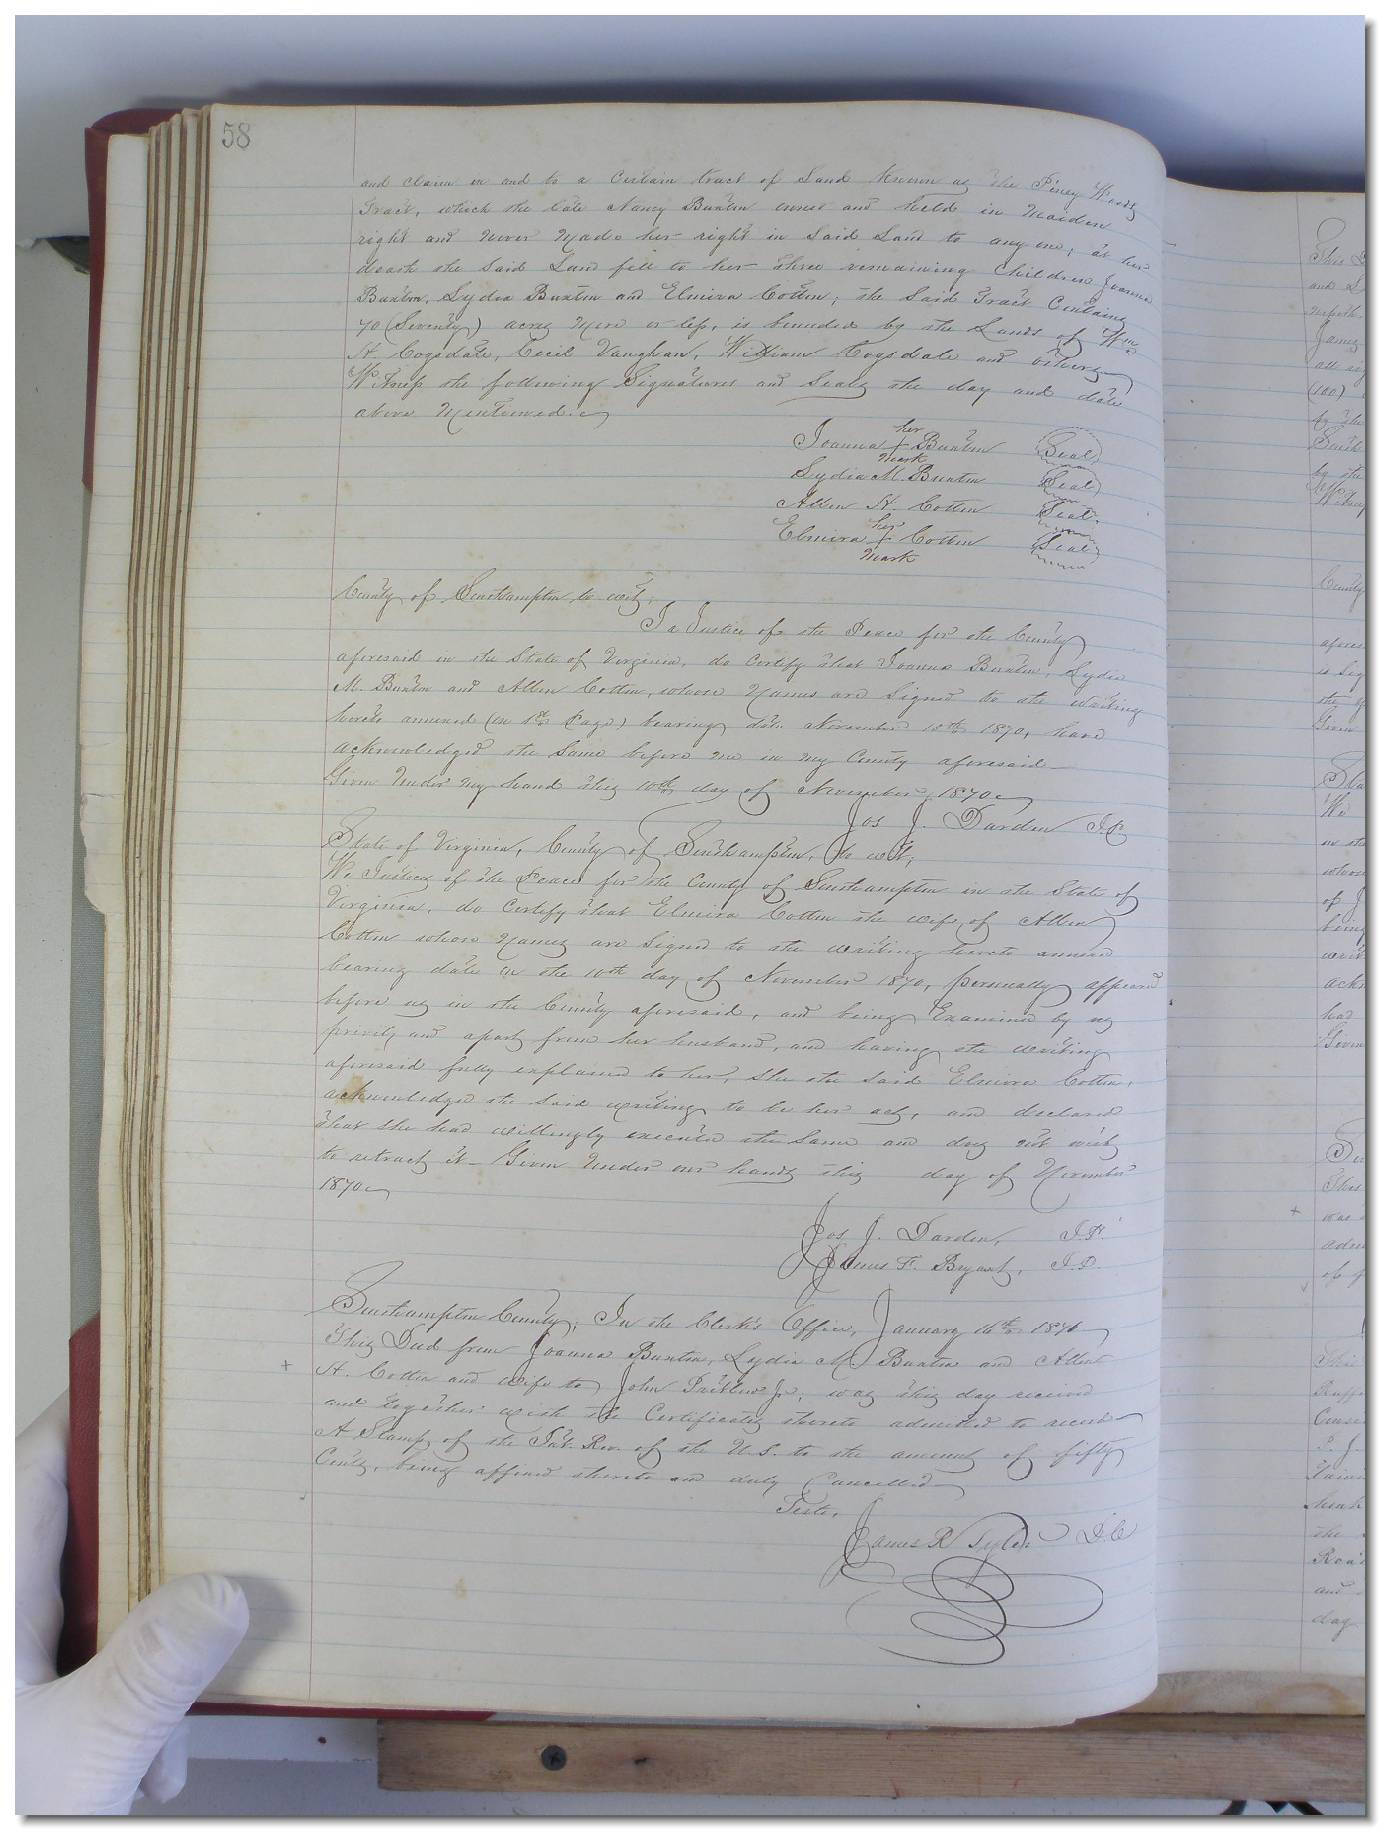 58
and claim in and to a Certain tract of Land known as the Piney Woods
Tract, which the late Nancy Buxton owned and held in Maiden
right and never Made her right in Said Land to any one, at her
death the Said Land fell to her three remaining Children Joanna
Buxton, Lydia Buxton and Elmira Cotten; the Said Tract Contains
70 (Seventy) acres More or less, is bounded by the Lands of Wm
H. Cogsdale, Cecil Vaughan, William Cogsdale and others
Witness the following Signatures and Seals the day and date
above Mentioned.
Joanna her + mark Buxton Seal
Lydia M. Buxton Seal
Allen H. Cotten Seal
Elmira her + mark Cotten Seal
County of Southampton to wit;
I a Justice of the Peace for the County
aforesaid in the State of Virginia, do Certify that Joanna Buxton, Lydia
M. Buxton and Allen Cotten, whose Names are Signed to the writing
hereto annexed (on 1st Page) bearing date November 10th 1870, have
acknowledged the Same before me in my County aforesaid
Given Under My hand this 10th day of November 1870
Jos J. Darden J.P.
State of Virginia, County of Southampton, to wit;
We Justices of the Peace for the County of Southampton in the State of
Virginia, do Certify that Elmira Cotten the wife of Allen
Cotten whose Names are Signed to the writing hereto annexed
bearing date on the 10th day of November 1870, personally appeared
before us in the County aforesaid, and being Examined by us
privily and apart from her husband, and having the writing
aforesaid fully explained to her, She the Said Elmira Cotten,
acknowledged the Said writing to be her act, and declared
that She had willingly executed the Same and does not wish
to retract it - Given Under our hands this day of November
1870
Jos J. Darden, J.P.
James F. Bryant, J.P.
Southampton County; In the Clerk's Office, January 16th 1871
This Deed from Joanna Buxton, Lydia M Buxton and Allen
+ H. Cotten and wife to John Pretlow Jr, was this day received
and together with the Certificates thereto admitted to record
A Stamp of the Int. Rev. of the U.S. to the amount of fifty
Cents, being affixed thereto and duly Cancelled
Teste,
James R Tyler D.C